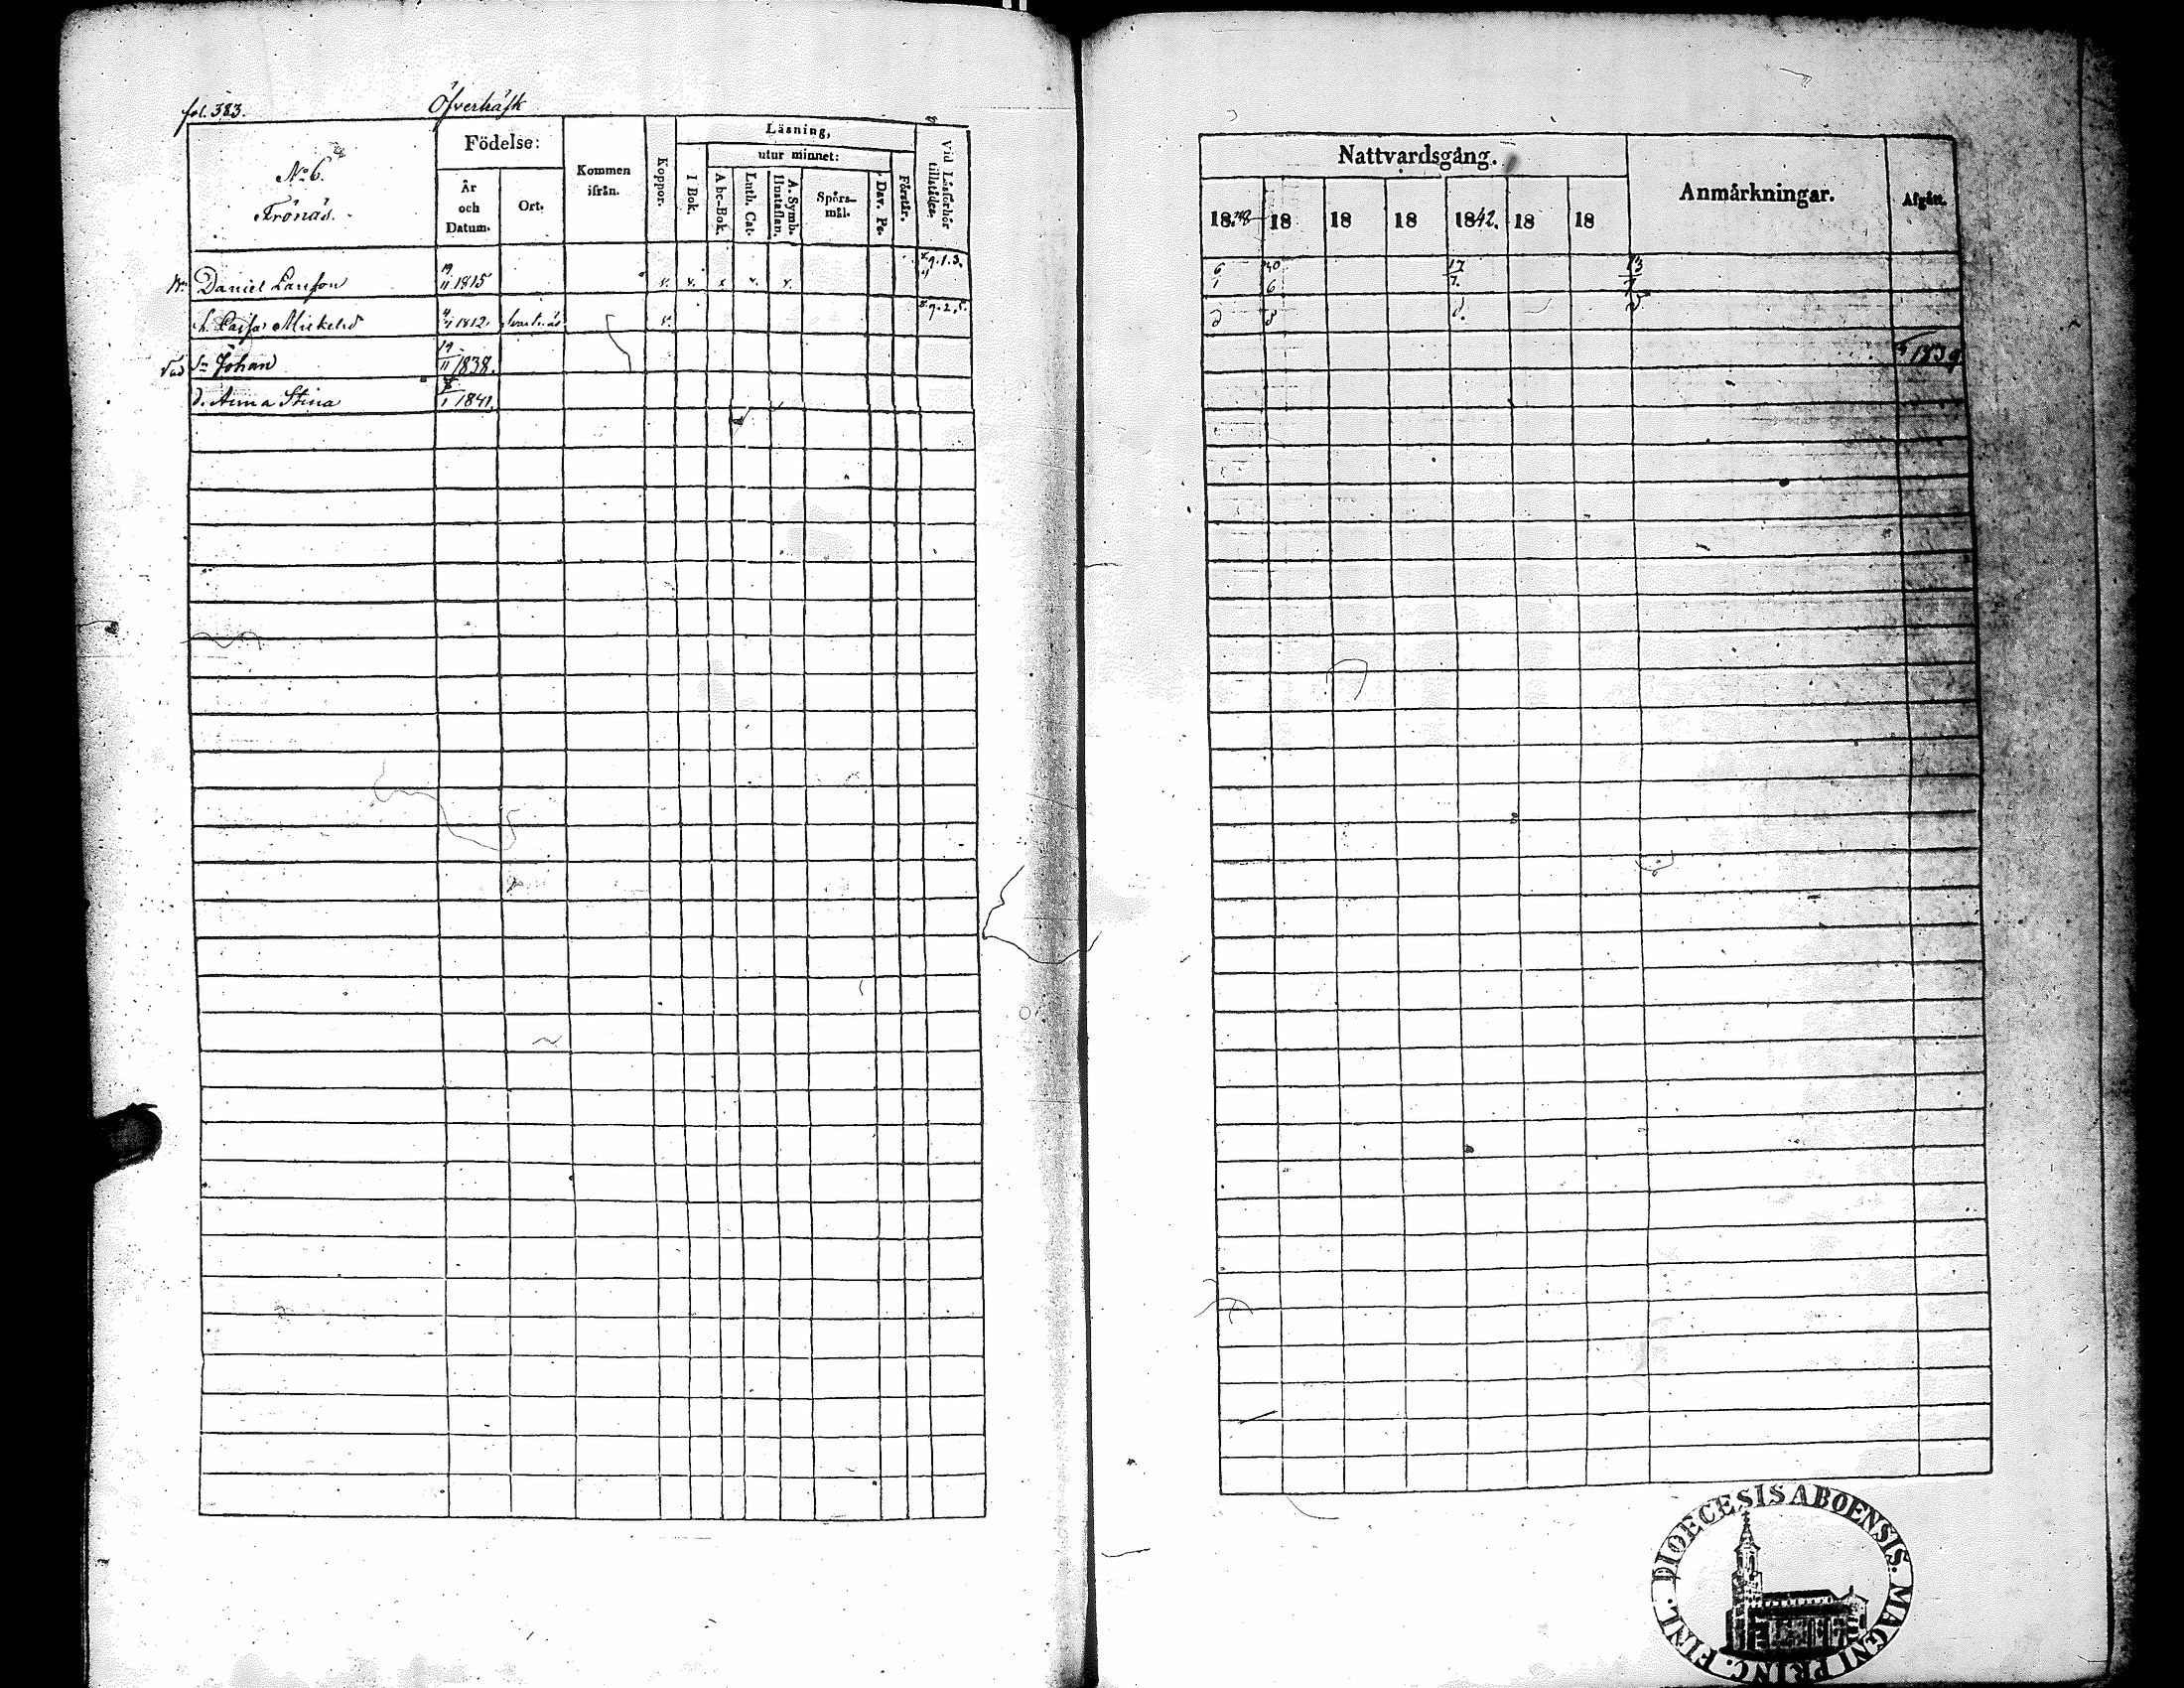 fol. 383.
Öfverträsk
No 6.
Trönäs.
Födelse:
År och Datum.
Ort.
Kommen ifrån.
Koppor.
Läsning,
I Bok.
utur minnet:
A bc-Bok.
Luth. Cat.
A. Symb. Hustaflan.
Spörs-mål.
Dav. Ps.
Förstår.
Vid Läsförhör tillstädes.
Daniel Larsson 19/11 1815 v. v. x v. v. 9.1.3.
h. Cajsa Mickelsd 4/1 1812. Svartnäs v. 9.2.5.
Sn Johan 19/11 1838.
d. Anna Stina 7/1 1841.
Nattvardsgång.
Anmärkningar.
Afgått.
18 18 18 18 1842. 18 18
6/1 40/6 17/7. 13/7
d d d. d.
1839
DIOECESIS ABOENSIS. MAGNI PRINC. FINL.